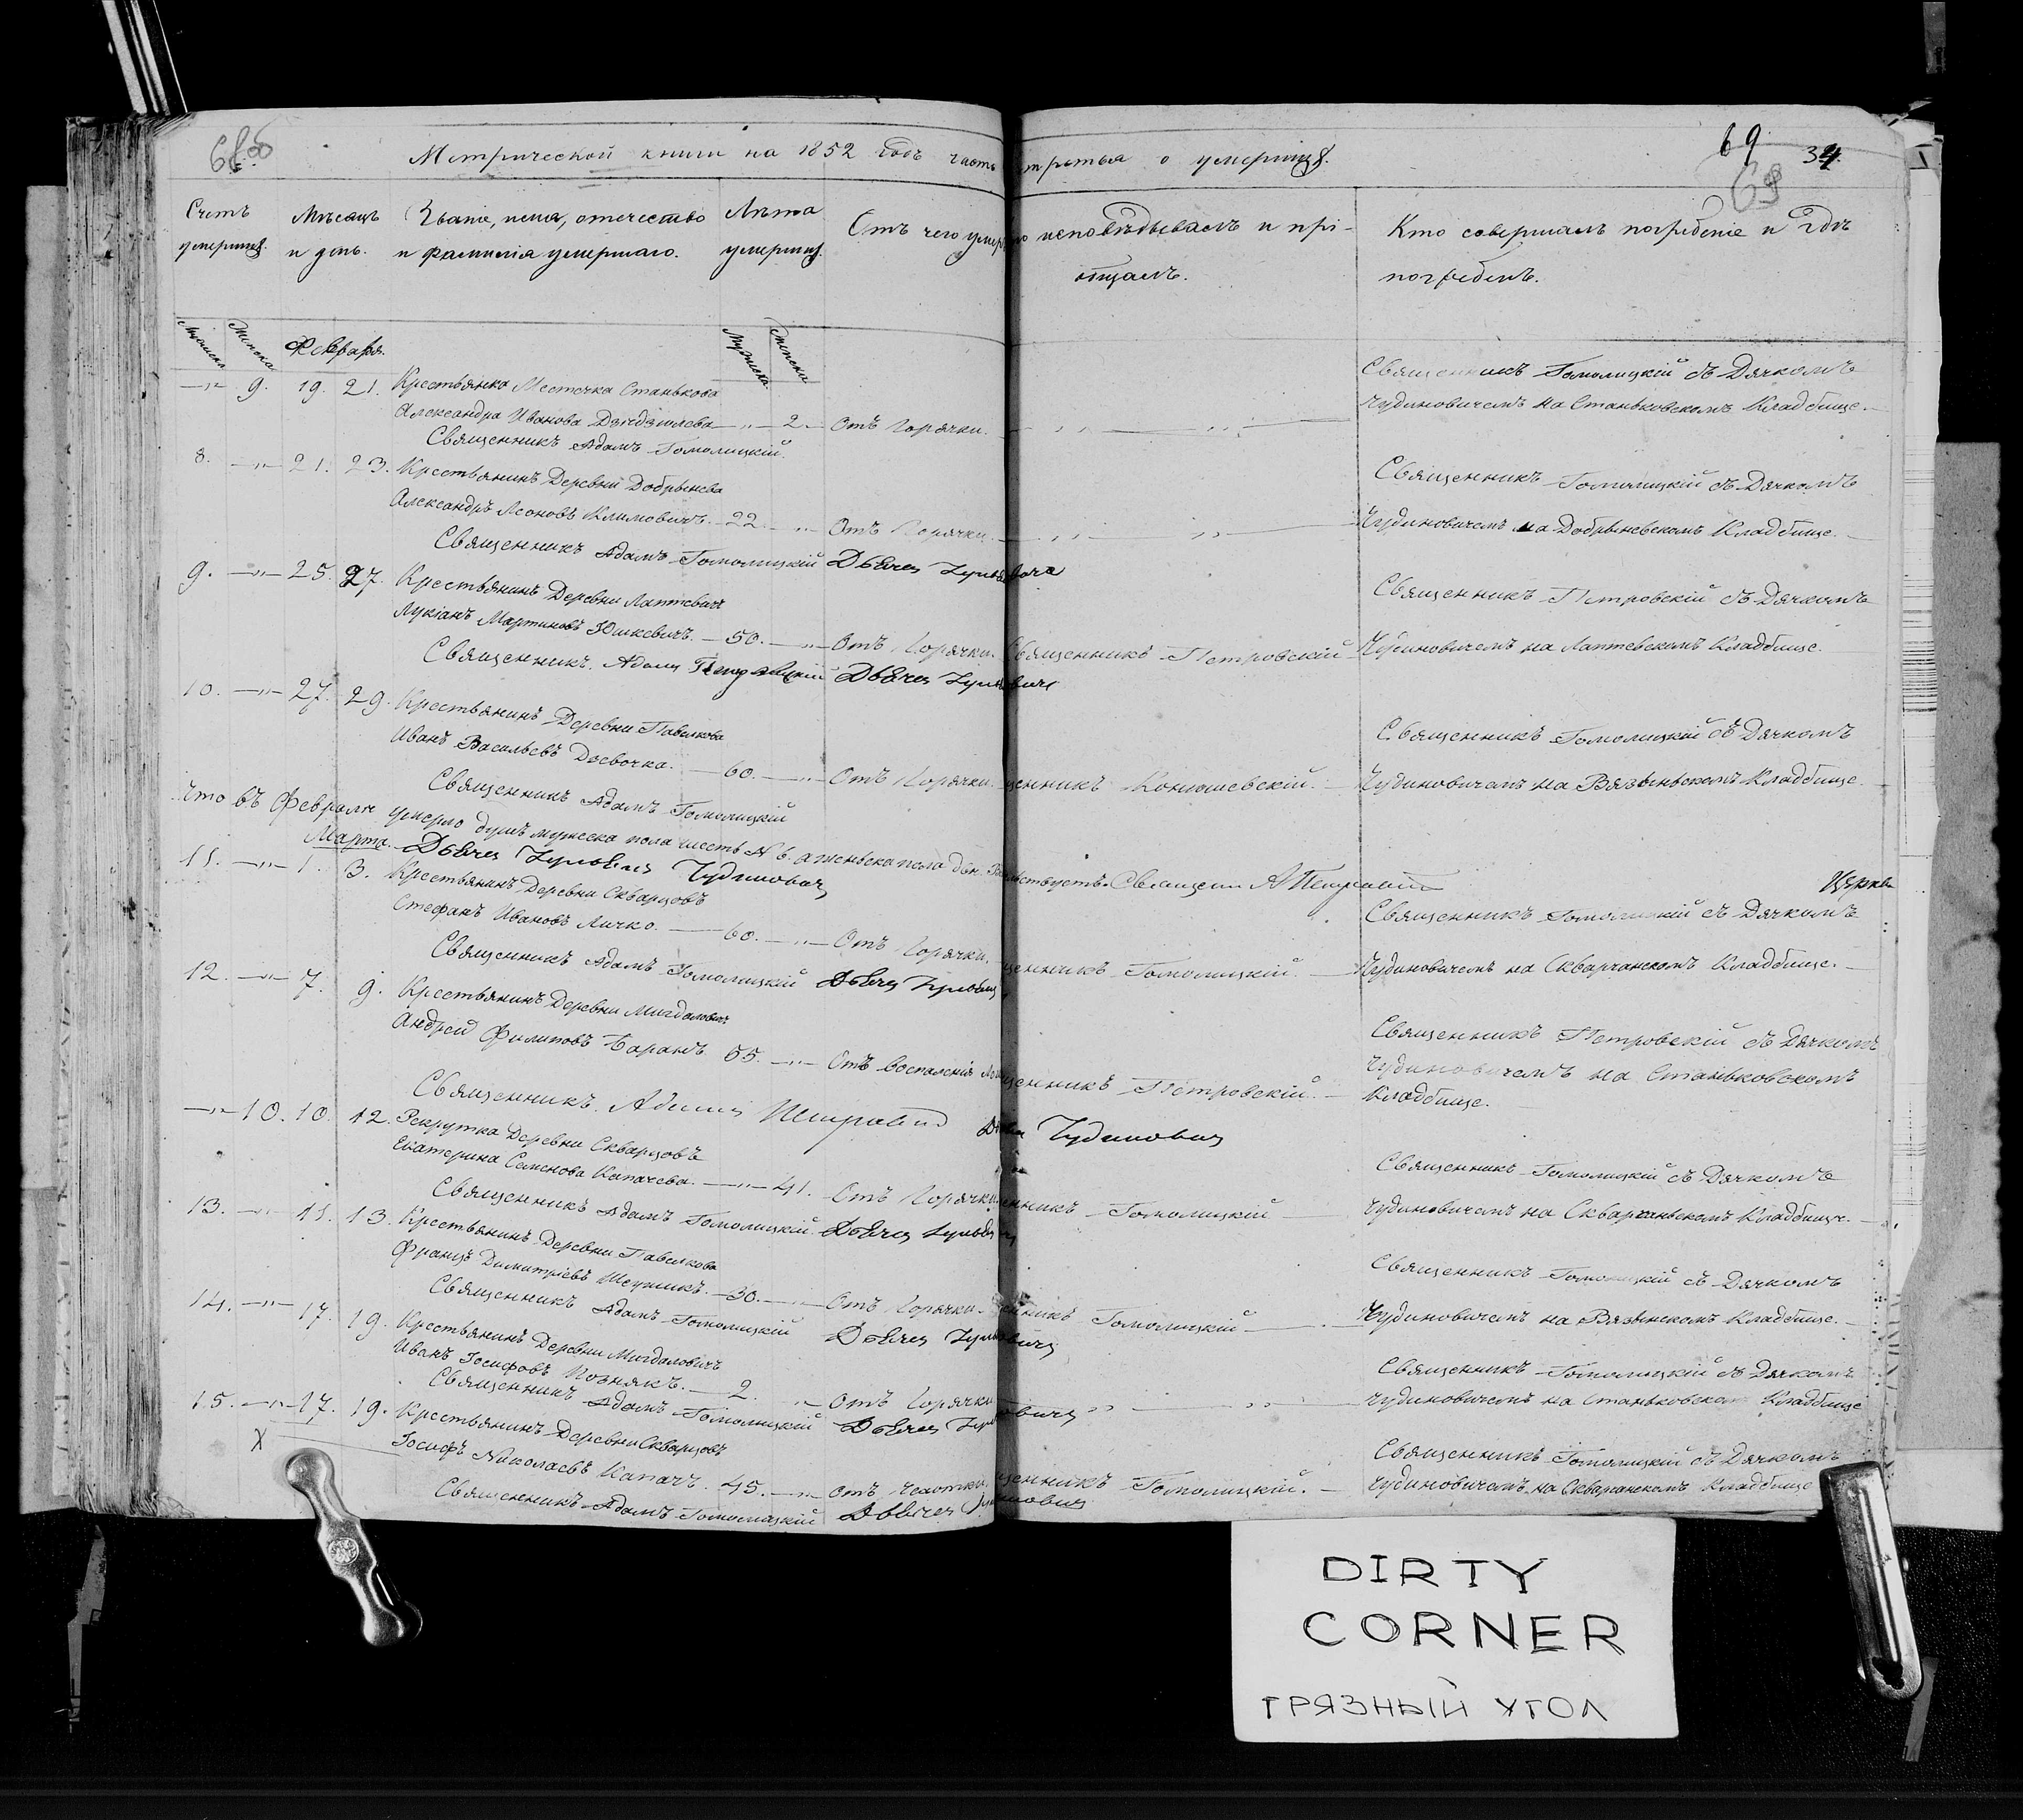 68 69 34.
Метрической книги на 1852 годъ часть третья о умершихъ.
Счетъ умершихъ. Мѣсяцъ и день. Званіе, имя, отечество и фамилія умершаго. Лѣта умершихъ. Отъ чего умеръ исповѣдывалъ и прі- общалъ. Кто совершалъ погребеніе и гдѣ погребенъ.
Мужеска Женска Февраля. Мужеска Женска
—„— 9. 19. 21. Крестьянка Местечка Станькова
Александра Иванова —„— 2. Отъ Горячки. — „ — „ —
Священникъ Гомолицкій съ Дячкомъ
Чудиновичемъ на Станьковскомъ Кладбище.
Священникъ Адамъ Гомолицкій.
8. —„— 21. 23. Крестьянинъ Деревни Добрынева
Александръ Леоновъ Климовичъ. — 22. —„— Отъ Горячки. — „ — „ —
Священникъ Гомолицкій съ Дячкомъ
Чудиновичемъ на Добрыневскомъ Кладбище.
Священникъ Адамъ Гомолицкій
9. —„— 25. 27. Крестьянинъ Деревни Лаптевичъ
Лукіанъ Мартиновъ Юшкевичъ. — 50. —„— Отъ Горячки. Священникъ Петровскій
Священникъ Петровскій съ Дячкомъ
Чудиновичемъ на Лаптевскомъ Кладбище.
Священникъ. Адамъ
10. —„— 27. 29. Крестьянинъ Деревни Павелкова
Иванъ Васильевъ Дзевочка. — 60. —„— Отъ Горячки. щенникъ Конюшевскій.
Священникъ Гомолицкій съ Дячкомъ
Чудиновичемъ на Вязеньскомъ Кладбище.
Священникъ Адамъ Гомолицкій
Что въ Февралѣ умерло душъ мужеска пола шесть № 6. а женьска пола
Марта. Чудиновичъ
11. —„— 1. 3. Крестьянинъ Деревни Скварцовъ
Стефанъ Ивановъ Личко. — 60. —„— Отъ Горячки. щенникъ Гомолицкій.
Священникъ Гомолицкій съ Дячкомъ
Чудиновичемъ на Скварчанскомъ Кладбище.
Священникъ Адамъ Гомолицкій
12. —„— 7. 9. Крестьянинъ Деревни Мигдаловичъ
Андрей Филиповъ Баранъ 55. —„— Отъ воспаленія щенникъ Петровскій.
Священникъ Петровскій съ Дячкомъ
Чудиновичемъ на Станьковскомъ
Кладбище.
Священникъ. Адамъ Чудиновичъ
—„— 10. 10. 12. Рекрутка Деревни Скварцовъ
Екатерина Семенова Капачева. —„— 41. Отъ Горячки. щенникъ Гомолицкій
Священникъ Гомолицкій съ Дячкомъ
Чудиновичемъ на Скварчаньскомъ Кладбище.
Священникъ Адамъ Гомолицкій
13. —„— 11. 13. Крестьянинъ Деревни Павелкова
Францъ Димитріевъ — 30. —„— Отъ Горячки. щенникъ Гомолицкій
Священникъ Гомолицкій съ Дячкомъ
Чудиновичемъ на Вязынскомъ Кладбище.
Священникъ Адамъ Гомолицкій
14. —„— 17. 19. Крестьянинъ Деревни Мигдаловичъ
Иванъ Іосифовъ Познякъ. — 2. „ Отъ Горячки „ — „ —
Священникъ Гомолицкій съ Дячкомъ
Чудиновичемъ на Станьковском Кладбище
Священникъ Адамъ Гомолицкій
15. —„— 17. 19. Крестьянинъ Деревни Скварцовъ
X Іосифъ Николаевъ Капачъ. 45. —„— отъ Чехотки. щенникъ Гомолицкій.
Священникъ Гомолицкій съ Дячкомъ
Чудиновичемъ на Скварчанскомъ Кладбище
Священникъ Адамъ Гомолицкій
DIRTY
CORNER
ГРЯЗНЫЙ УГОЛ